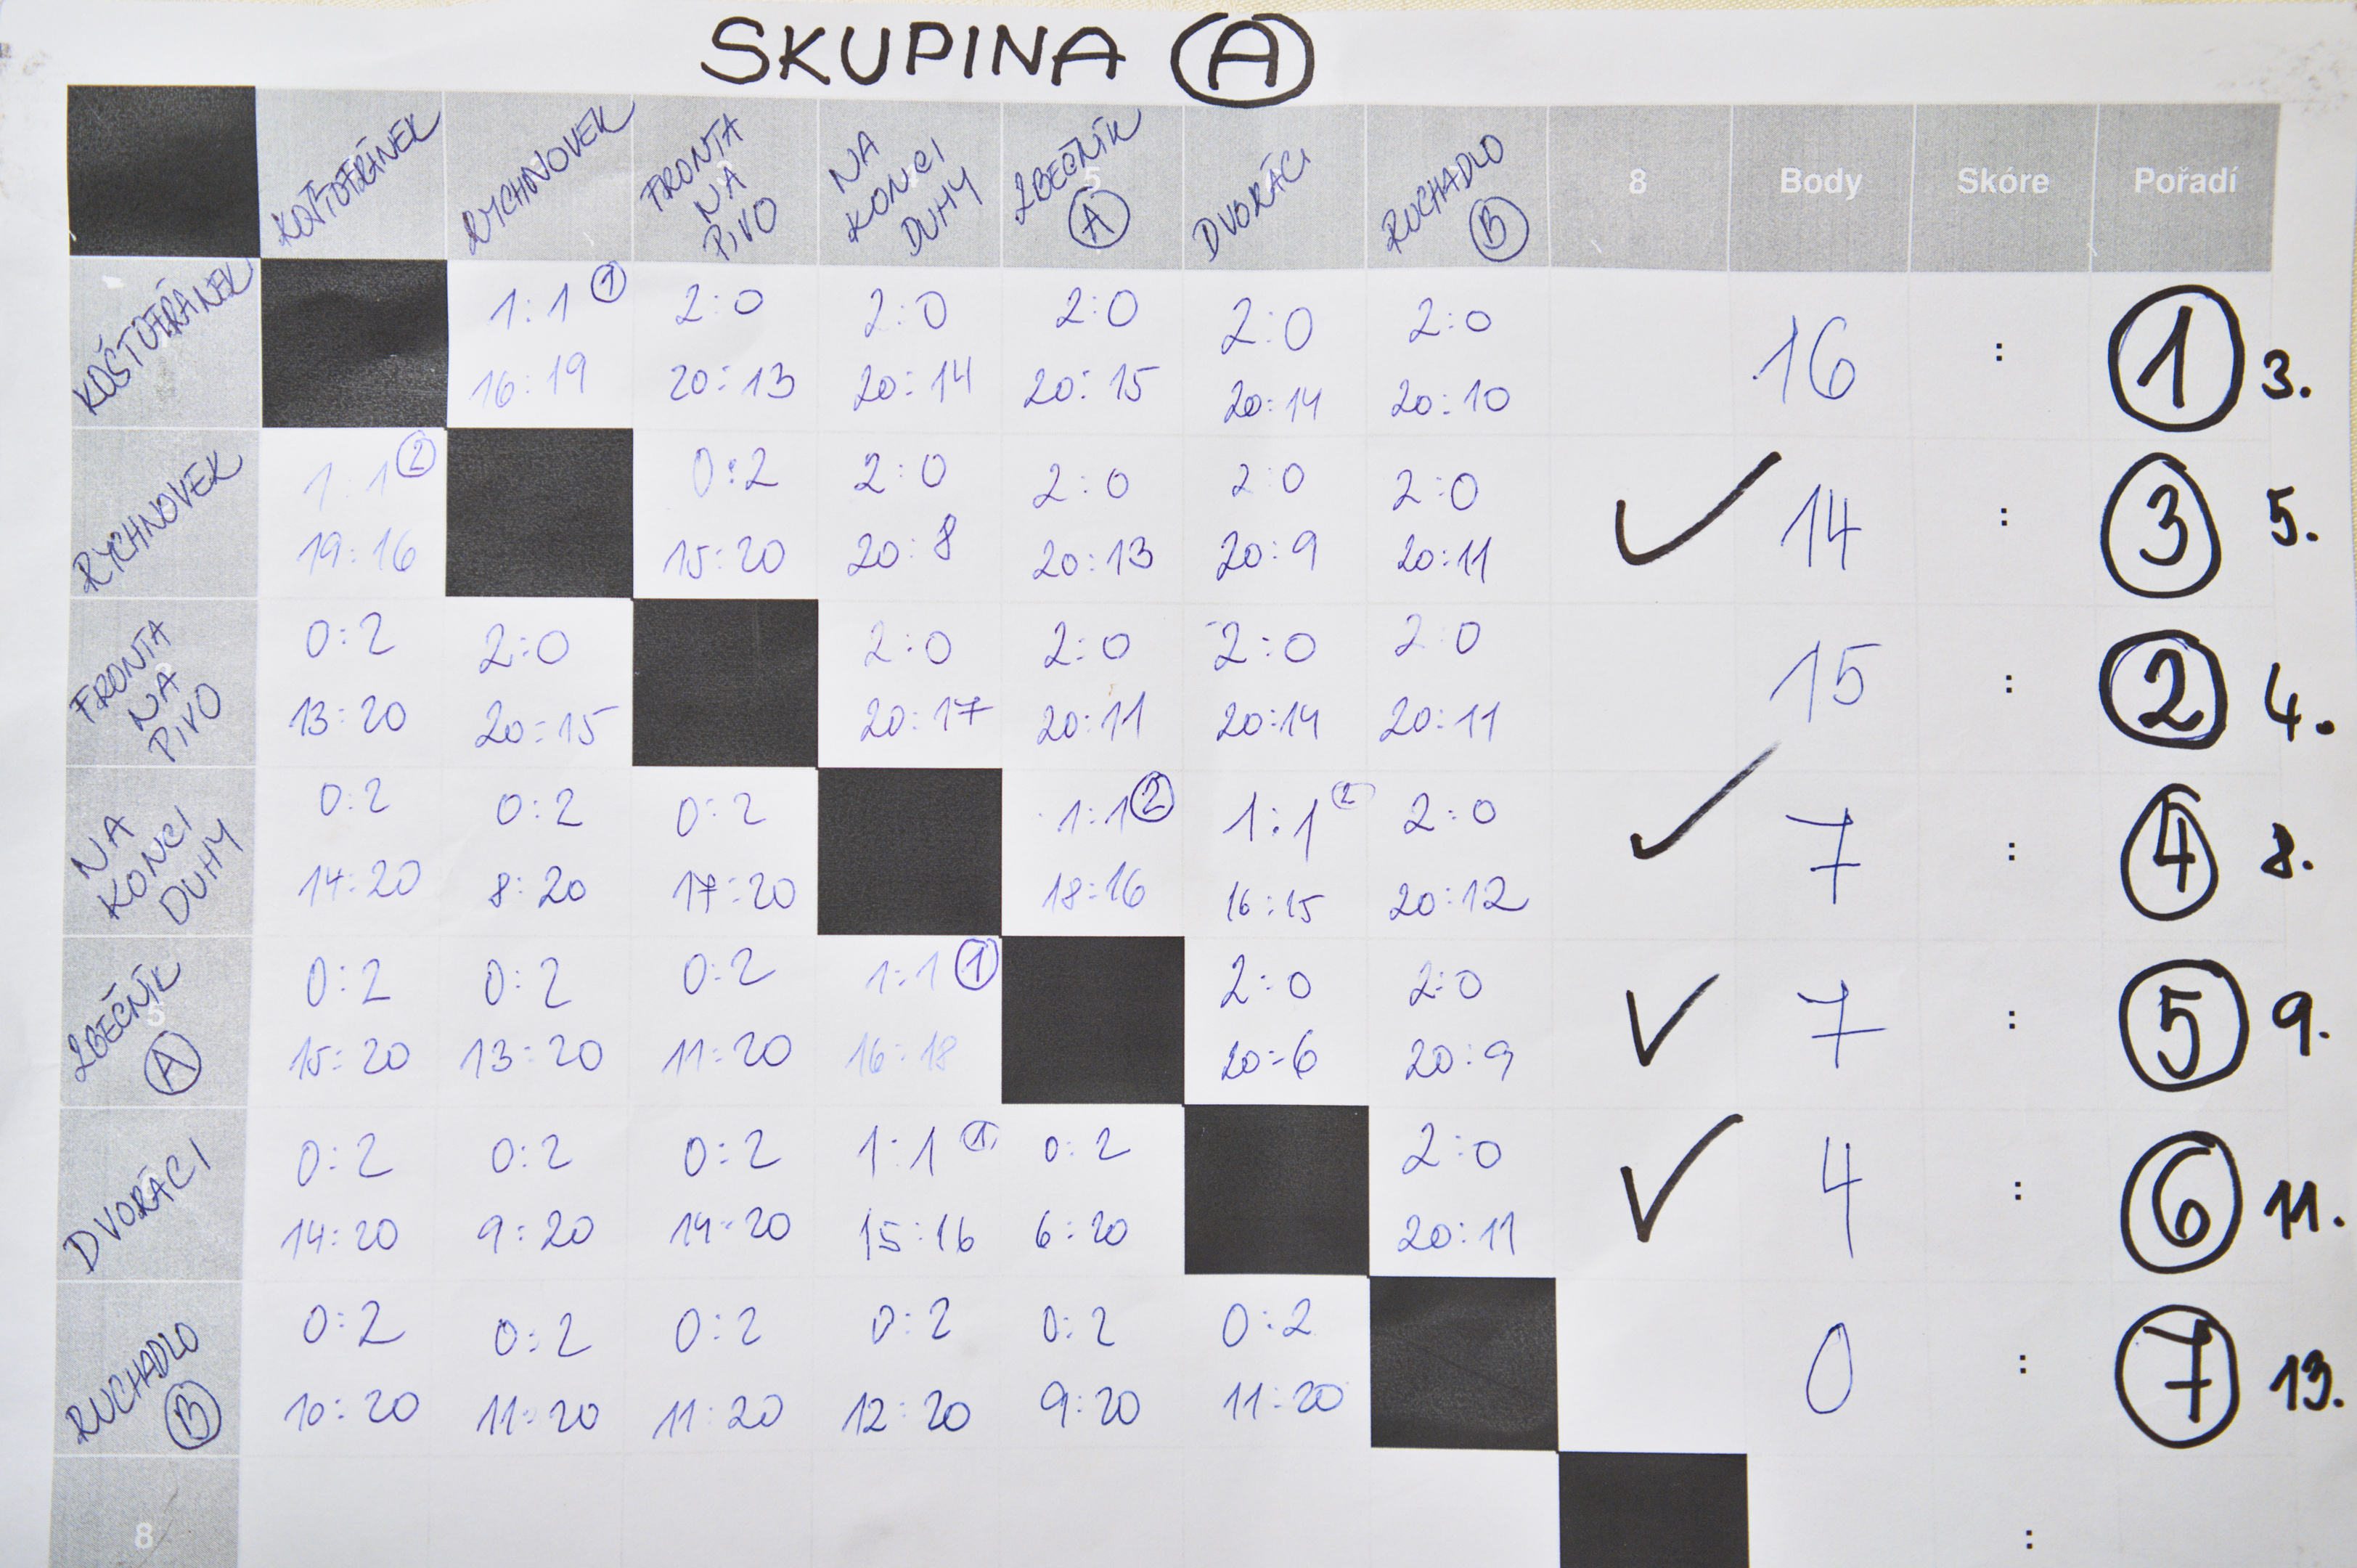 SKUPINA A
KOŠTOFRÁNEK RYCHNOVEK FRONTA NA PIVO NA KONCI DUHY ZBEČNÍK A DVORÁCI RUCHADLO B 8 Body Skóre Pořadí
KOŠTOFRÁNEK 1:1 1 2:0 2:0 2:0 2:0 2:0 16 : 1 3.
16:19 20:13 20:14 20:15 20:14 20:10
RYCHNOVEK 1:1 2 0:2 2:0 2:0 2:0 2:0 ✓ 14 : 3 5.
19:16 15:20 20:8 20:13 20:9 20:11
FRONTA NA PIVO 0:2 2:0 2:0 2:0 2:0 2:0 15 : 2 4.
13:20 20:15 20:17 20:11 20:14 20:11
NA KONCI DUHY 0:2 0:2 0:2 1:1 2 1:1 2 2:0 ✓ 7 : 4 8.
14:20 8:20 17:20 18:16 16:15 20:12
ZBEČNÍK A 0:2 0:2 0:2 1:1 1 2:0 2:0 ✓ 7 : 5 9.
15:20 13:20 11:20 16:18 20:6 20:9
DVORÁCI 0:2 0:2 0:2 1:1 1 0:2 2:0 ✓ 4 : 6 11.
14:20 9:20 14:20 15:16 6:20 20:11
RUCHADLO B 0:2 0:2 0:2 0:2 0:2 0:2 0 : 7 13.
10:20 11:20 11:20 12:20 9:20 11:20
8 :